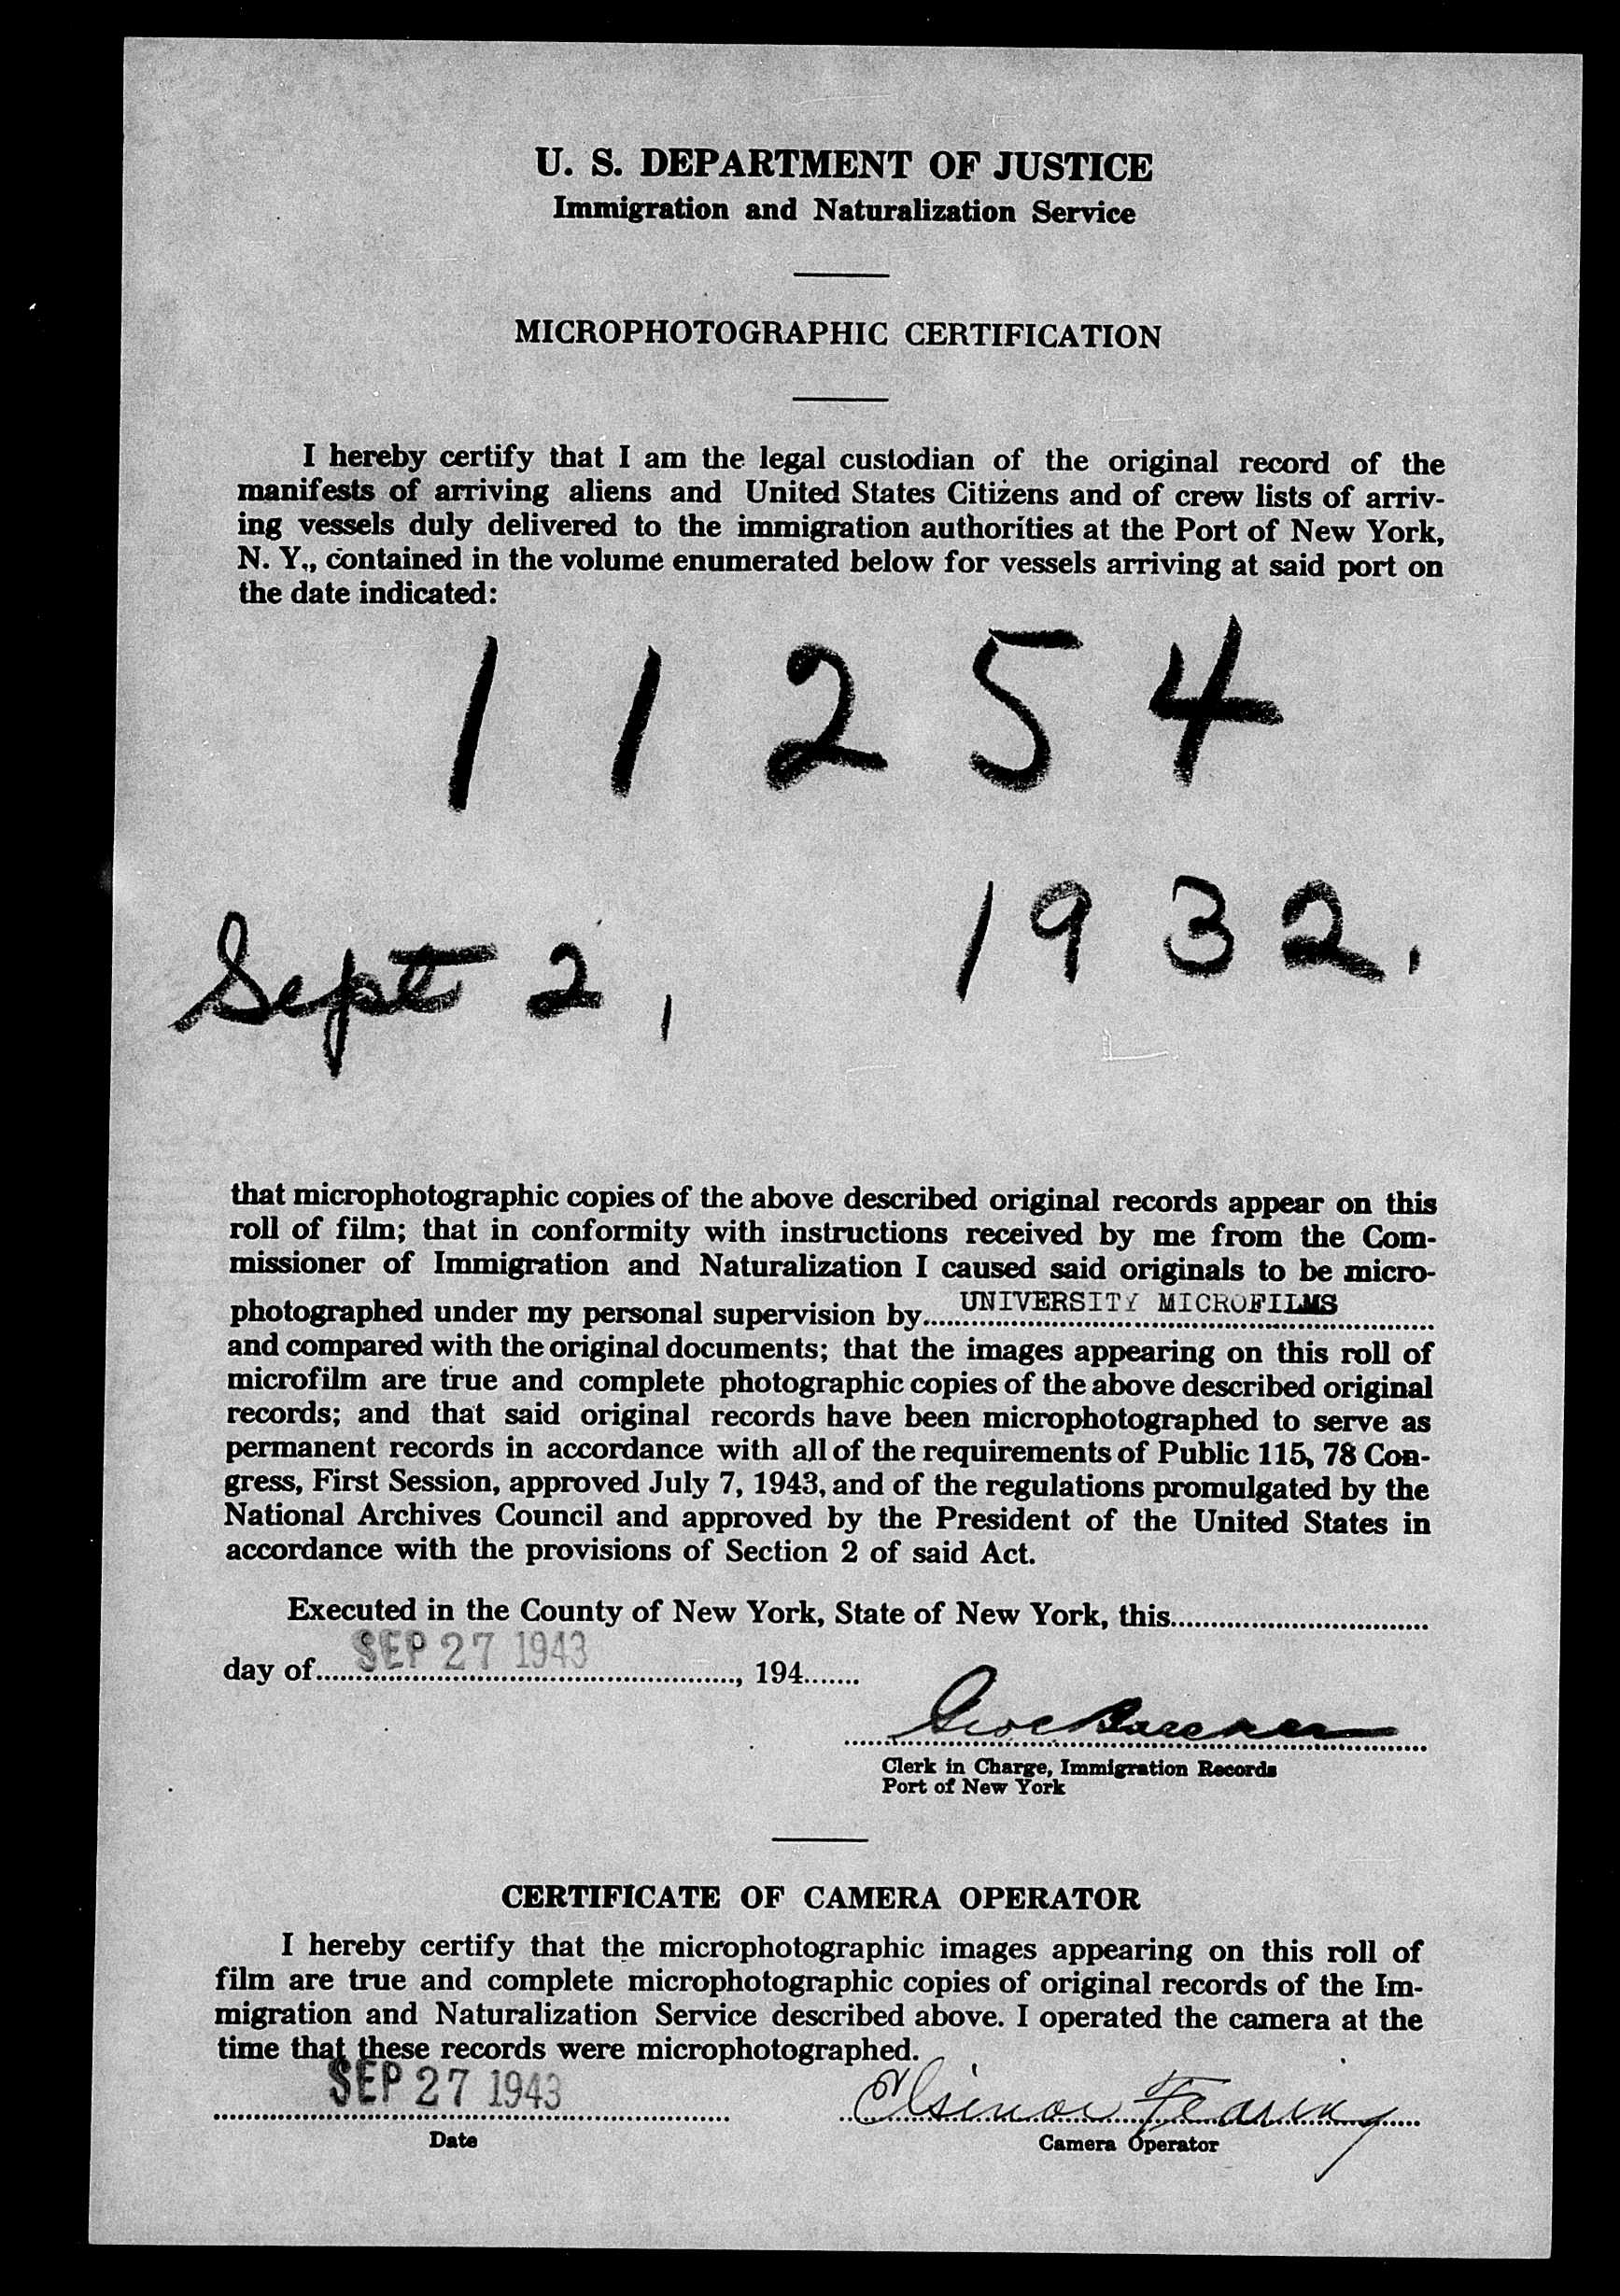 U. S. DEPARTMENT OF JUSTICE
Immigration and Naturalization Service
MICROPHOTOGRAPHIC CERTIFICATION
I hereby certify that I am the legal custodian of the original record of the
manifests of arriving aliens and United States Citizens and of crew lists of arriv-
ing vessels duly delivered to the immigration authorities at the Port of New York,
N. Y., contained in the volume enumerated below for vessels arriving at said port on
the date indicated:
11254
Sept 2, 1932.
that microphotographic copies of the above described original records appear on this
roll of film; that in conformity with instructions received by me from the Com-
missioner of Immigration and Naturalization I caused said originals to be micro-
photographed under my personal supervision by UNIVERSITY MICROFILMS
and compared with the original documents; that the images appearing on this roll of
microfilm are true and complete photographic copies of the above described original
records; and that said original records have been microphotographed to serve as
permanent records in accordance with all of the requirements of Public 115, 78 Con-
gress, First Session, approved July 7, 1943, and of the regulations promulgated by the
National Archives Council and approved by the President of the United States in
accordance with the provisions of Section 2 of said Act.
Executed in the County of New York, State of New York, this
day of SEP 27 1943, 194
Clerk in Charge, Immigration Records
Port of New York
CERTIFICATE OF CAMERA OPERATOR
I hereby certify that the microphotographic images appearing on this roll of
film are true and complete microphotographic copies of original records of the Im-
migration and Naturalization Service described above. I operated the camera at the
time that these records were microphotographed.
SEP 27 1943
Date
Camera Operator